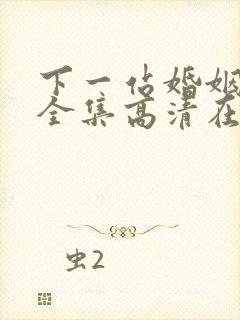 下一站婚姻
全集高清在
虫2